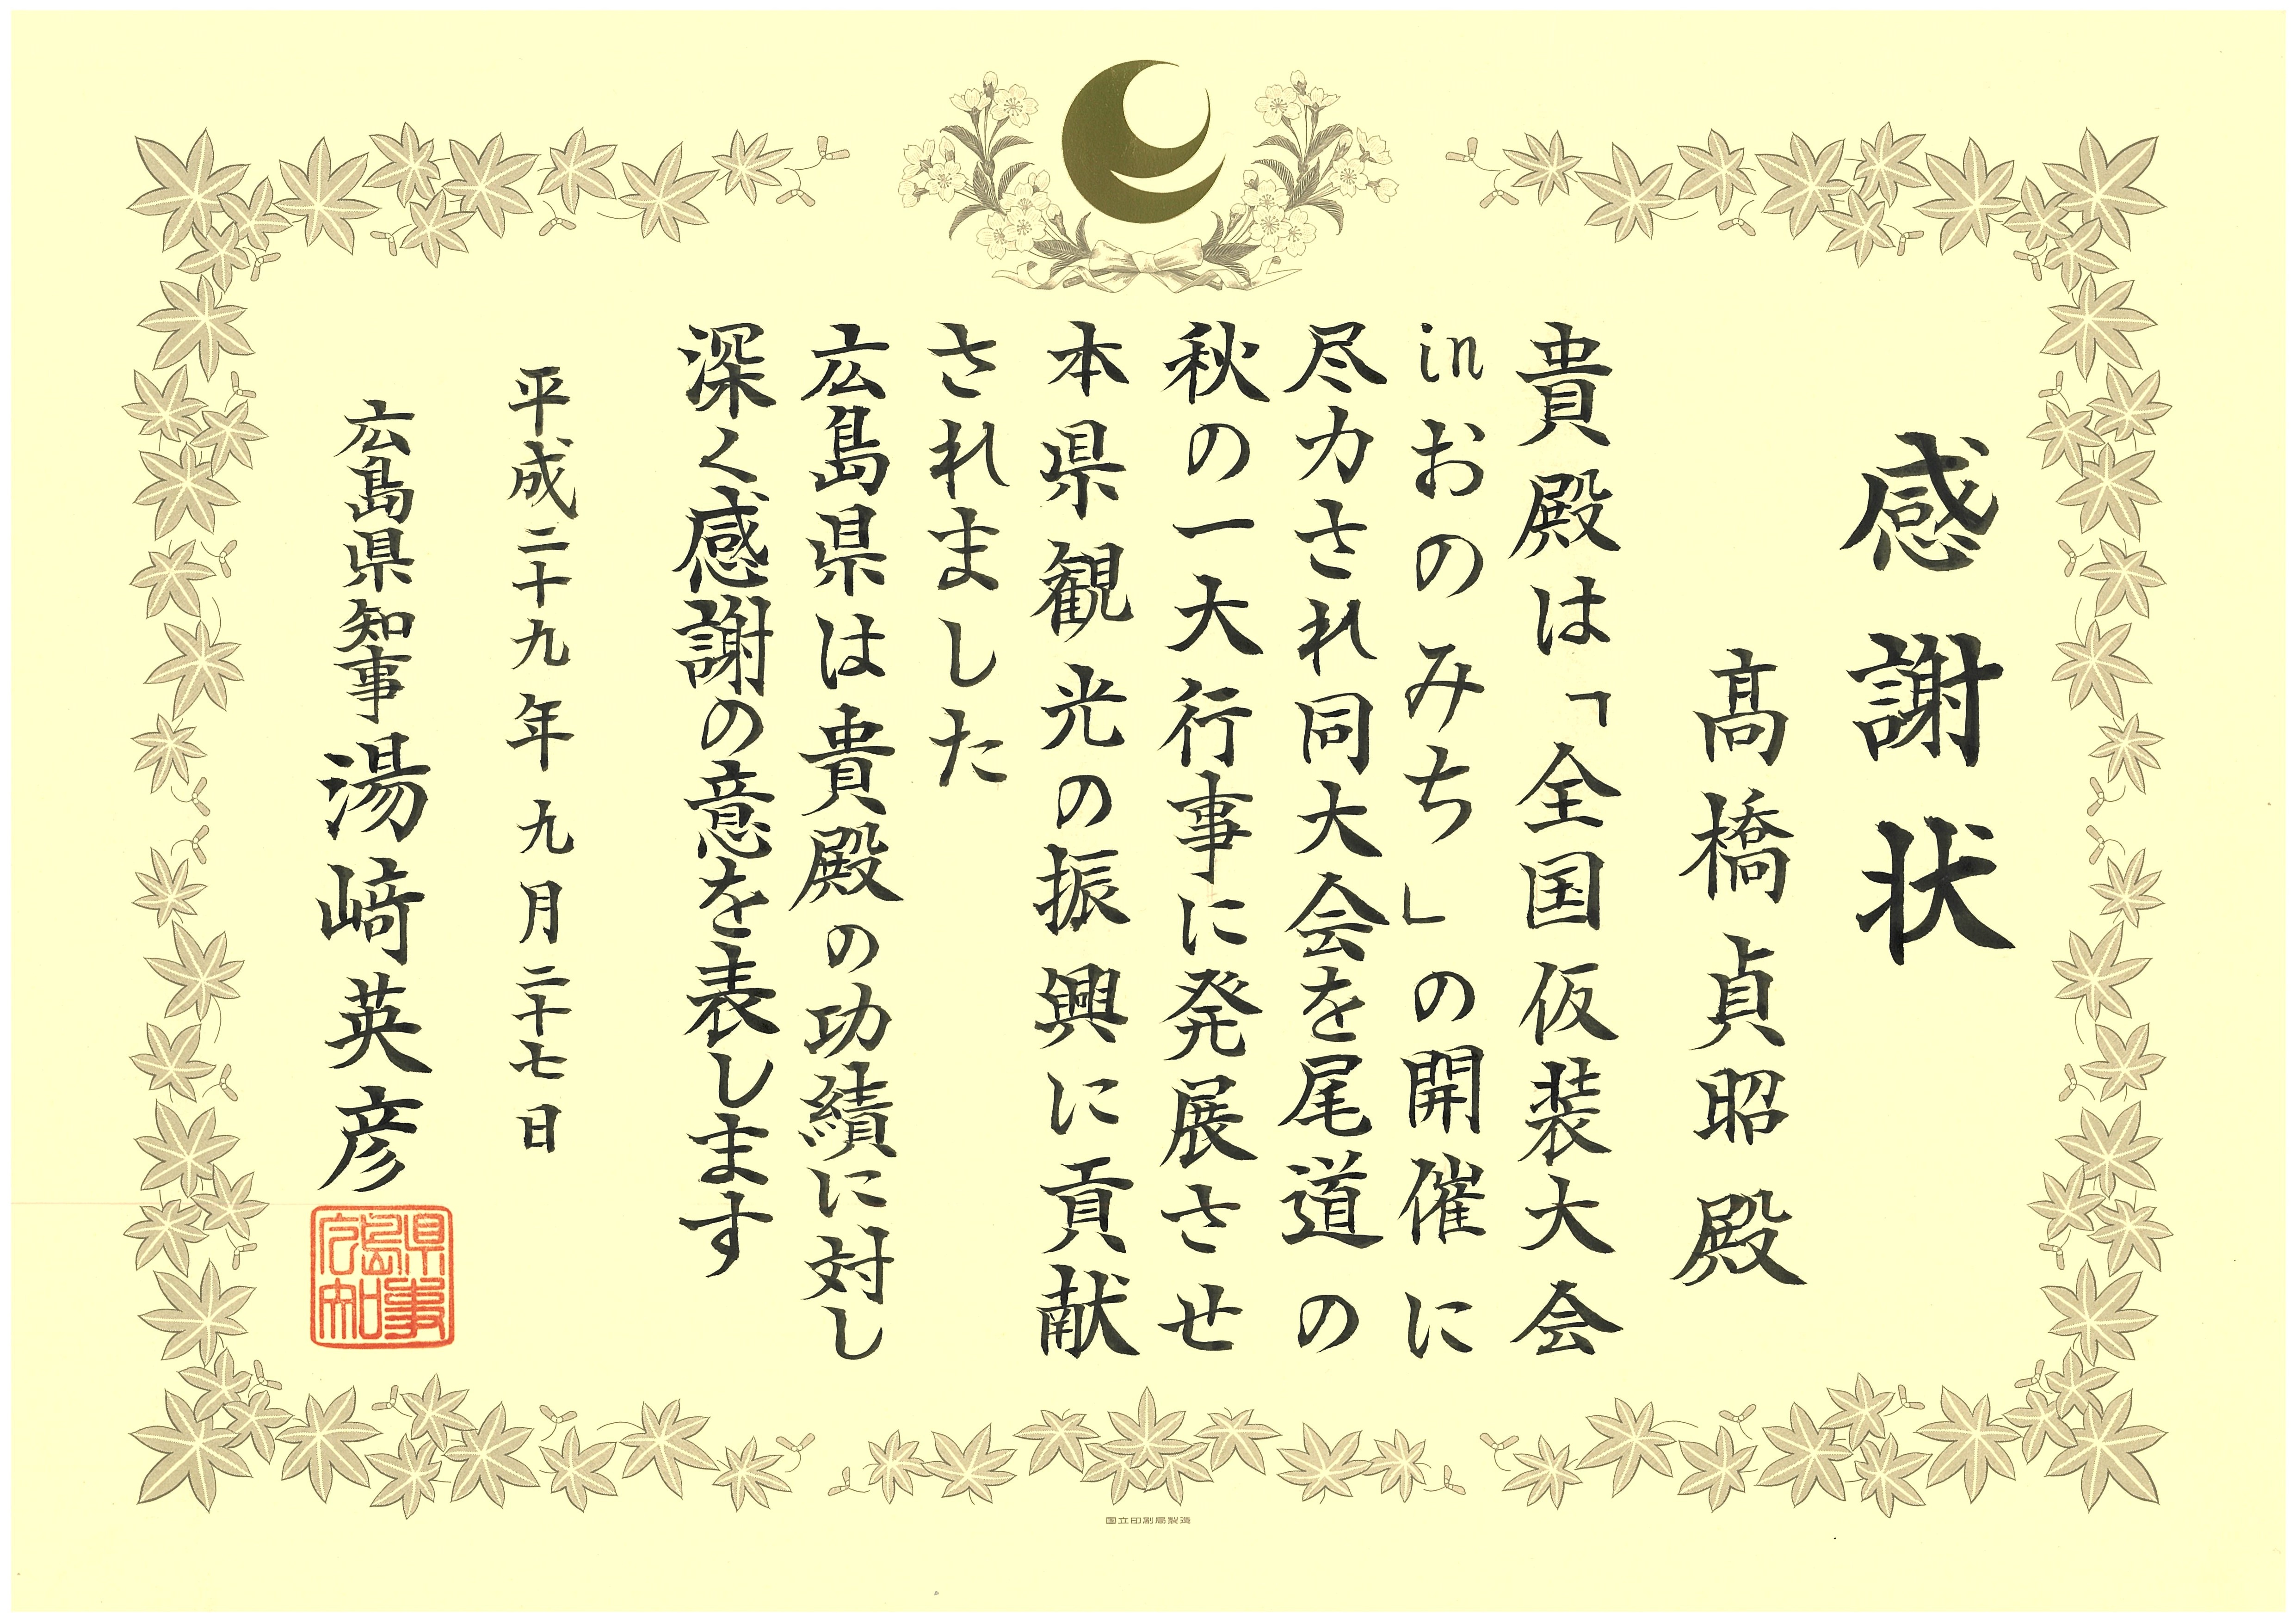 感謝状
髙橋貞昭殿
貴殿は「全国仮装大会
inおのみち」の開催に
尽力され同大会を尾道の
秋の一大行事に発展させ
本県観光の振興に貢献
されました
広島県は貴殿の功績に対し
深く感謝の意を表します
平成二十九年九月二十七日
広島県知事湯﨑英彦
広島県知事
国立印刷局製造